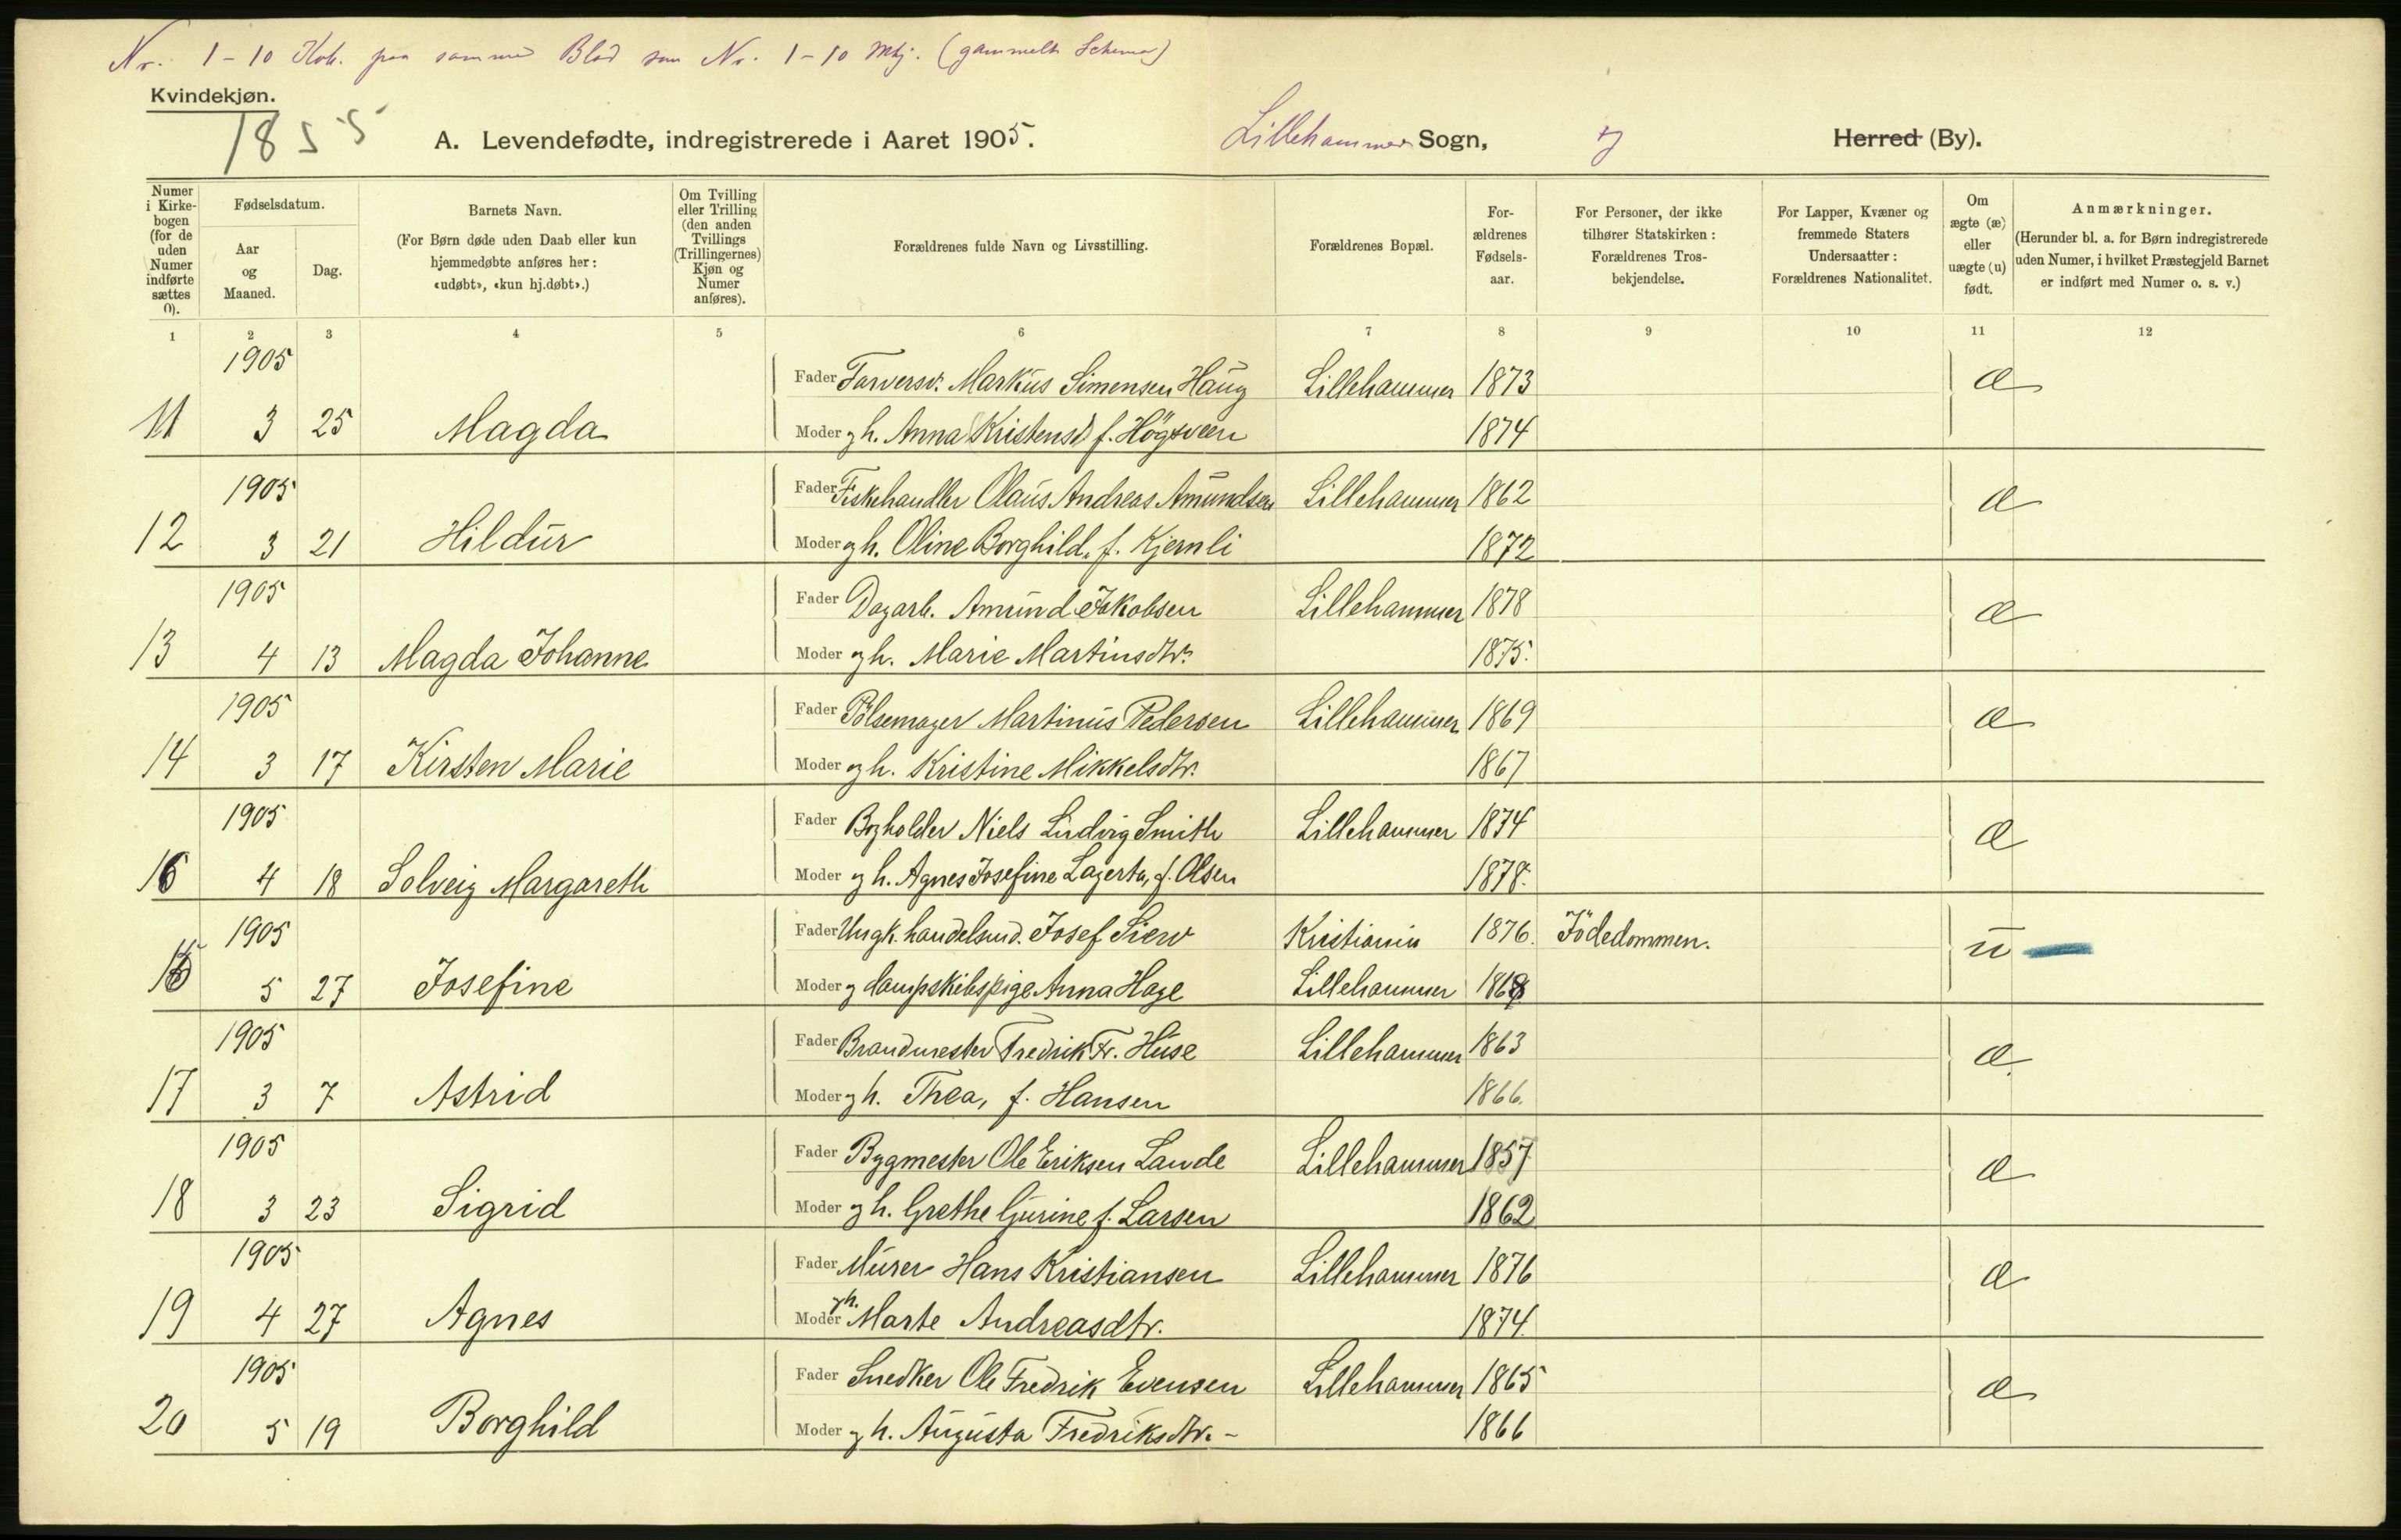 Nr. 1-10 Kvk. paa samme Blad som Nr. 1-10 Mkj. (gammelt Schema)
Kvindekjøn.
1855
A. Levendefødte, indregistrerede i Aaret 1905. Lillehammer Sogn, Herred (By).
Numer i Kirkebogen (for de uden Numer indførte sættes 0).
Fødselsdatum.
Aar og Maaned.
Dag.
Barnets Navn.
(For Børn døde uden Daab eller kun hjemmedøbte anføres her: «udøbt», «kun hj.døbt».)
Om Tvilling eller Trilling (den anden Tvillings (Trillingernes) Kjøn og Numer anføres).
Forældrenes fulde Navn og Livsstilling.
Forældrenes Bopæl.
Forældrenes Fødselsaar.
For Personer, der ikke tilhører Statskirken: Forældrenes Trosbekjendelse.
For Lapper, Kvæner og fremmede Staters Undersaatter: Forældrenes Nationalitet.
Om ægte (æ) eller uægte (u) født.
Anmærkninger.
(Herunder bl. a. for Børn indregistrerede uden Numer, i hvilket Præstegjeld Barnet er indført med Numer o. s. v.)
1 2 3 4 5 6 7 8 9 10 11 12
1905 Fader Farversv. Markus Simensen Haug Lillehammer 1873 æ
11 3 25 Magda Moder gh. Anna Kristensd f. Högsveen 1874
1905 Fader Fiskehandler Olaus Andreas Amundsen Lillehammer 1862 æ
12 3 21 Hildur Moder gh. Oline Borghild, f. Kjernli 1872
1905 Fader Dagarb. Amund Jakobsen Lillehammer 1878 æ
13 4 13 Magda Johanne Moder gh. Marie Martinsdtr. 1875.
1905 Fader Pölsemager Martinus Pedersen Lillehammer 1869 æ
14 3 17 Kirsten Marie Moder gh. Kristine Mikkelsdtr. 1867
1905 Fader Bogholder Niels Ludvig Smith Lillehammer 1874 æ
16 4 18 Solveig Margareth Moder gh. Agnes Josefine Lagerta, f. Olsen 1878.
1905 Fader Ungk. handelsmd. Josef Siew Kristiania 1876. Jödedommen. u
15 5 27 Josefine Moder g dampskibspige Anna Hage Lillehammer 1868
1905 Fader Brandmester Fredrik Fr. Huse Lillehammer 1863 æ
17 3 7 Astrid Moder gh. Thea, f. Hansen 1866.
1905 Fader Bygmester Ole Eriksen Lande Lillehammer 1857 æ
18 3 23 Sigrid Moder gh. Grethe Gurine f. Larsen 1862
1905 Fader Murer Hans Kristiansen Lillehammer 1876 æ
19 4 27 Agnes Moder gh. Marte Andreasdtr. 1874.
1905 Fader Snedker Ole Fredrik Evensen Lillehammer 1865 æ
20 5 19 Borghild Moder gh. Augusta Fredriksdtr. - 1866